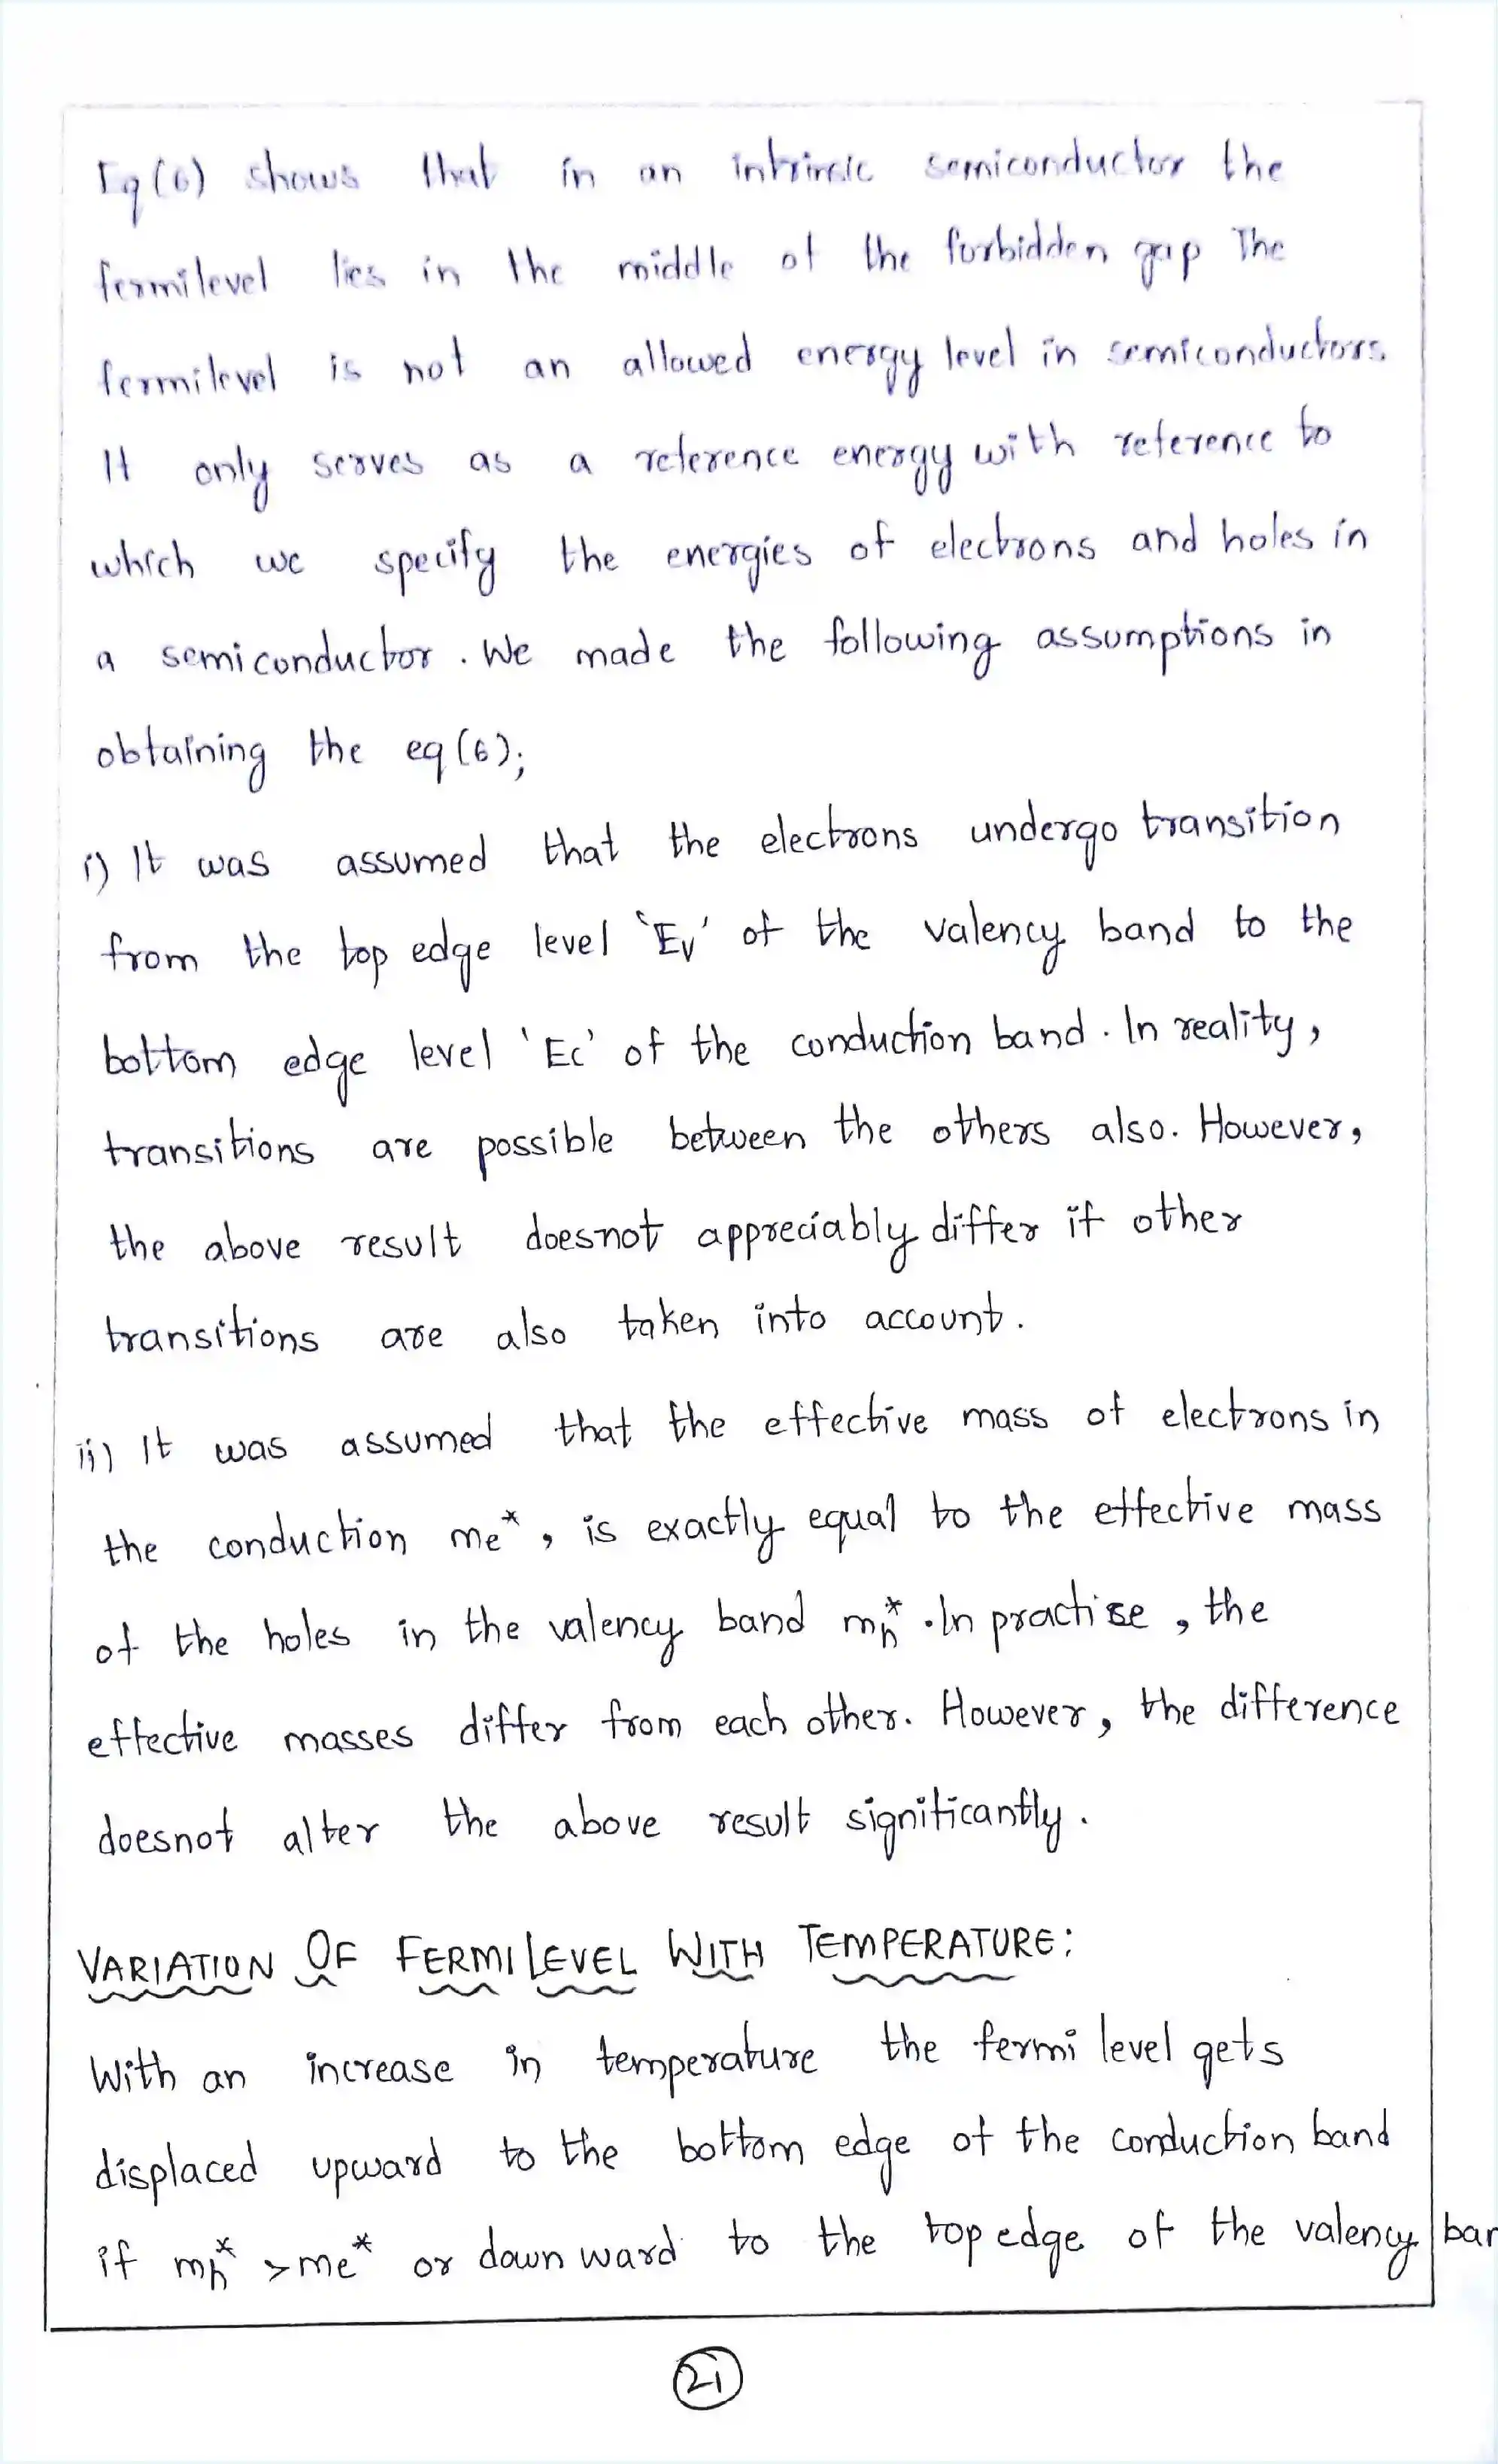 Eq(6) shows that in an intrinsic semiconductor the
fermilevel lies in the middle of the forbidden gap The
fermilevel is not an allowed energy level in semiconductors.
It only serves as a reference energy with reference to
which we specify the energies of electrons and holes in
a semiconductor. We made the following assumptions in
obtaining the eq(6);
i) It was assumed that the electrons undergo transition
from the top edge level 'Ev' of the valency band to the
bottom edge level 'Ec' of the conduction band. In reality,
transitions are possible between the others also. However,
the above result doesnot appreciably differ if other
transitions are also taken into account.
ii) It was assumed that the effective mass of electrons in
the conduction me*, is exactly equal to the effective mass
of the holes in the valency band mh*. In practise, the
effective masses differ from each other. However, the difference
doesnot alter the above result significantly.
VARIATION OF FERMI LEVEL WITH TEMPERATURE:
With an increase in temperature the fermi level gets
displaced upward to the bottom edge of the conduction band
if mh* > me* or downward to the top edge of the valency ban
21